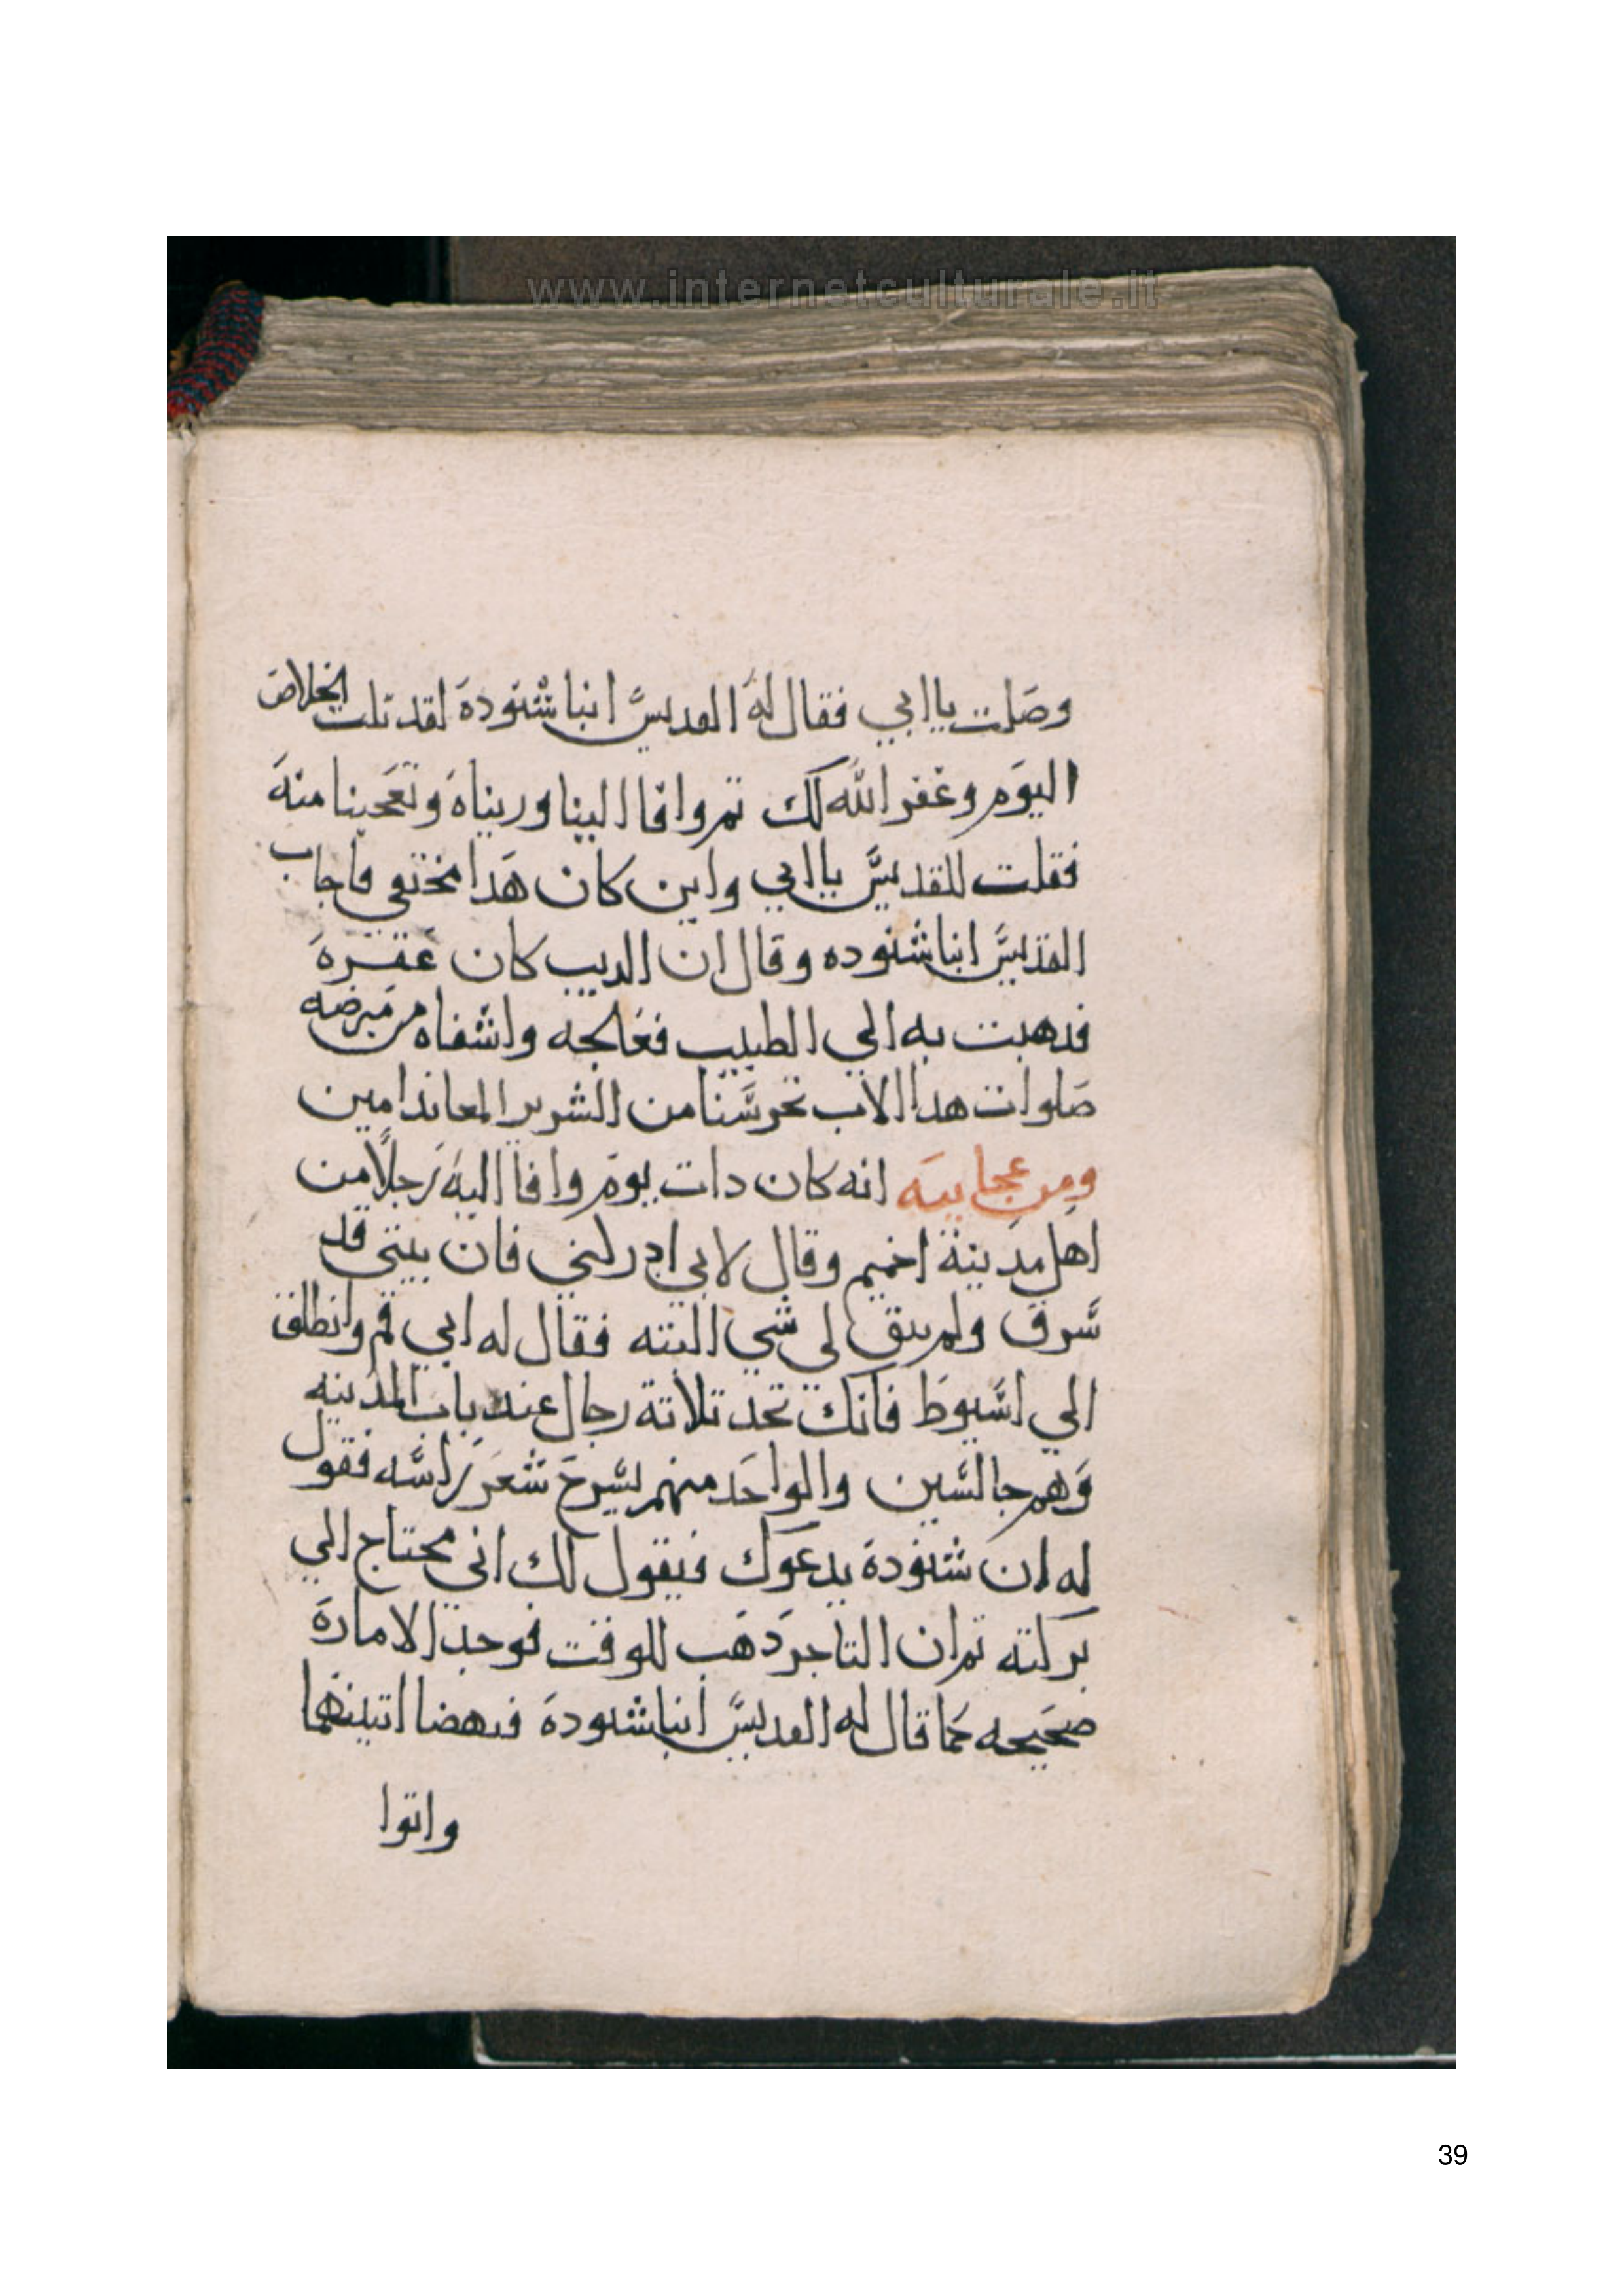 www.internetculturale.it
وصلت يا ابي فقال له القديس انبا شنودة لقد نلت الخلاص
اليوم وغفر الله لك تم وافا الينا وريناه وتعجبنا منه
فقلت للقديس يا ابي واين كان هدا مختفي فاجاب
القديس انبا شنوده وقال ان الديب كان عقره
فدهبت به الي الطبيب فعالجه واشفاه من مرضه
صلوات هدا الاب تحرسنا من الشرير المعاند امين
ومن عجايبه انه كان دات يوم وافا اليه رجلا من
اهل مدينة اخميم وقال لابي ادركني فان بيتي قد
سرق ولم يبق لي شي البته فقال له ابي قم وانطلق
الي اسيوط فانك تجد تلاتة رجال عند باب المدينه
وهم جالسين والواحد منهم يسرح شعر راسه فقول
له ان شنودة يدعوك فيقول لك اني محتاج الي
بركته تم ان التاجر دهب للوقت فوجد الامارة
صحيحه كما قال له القديس انبا شنودة فنهضا اتنينهما
واتوا
39